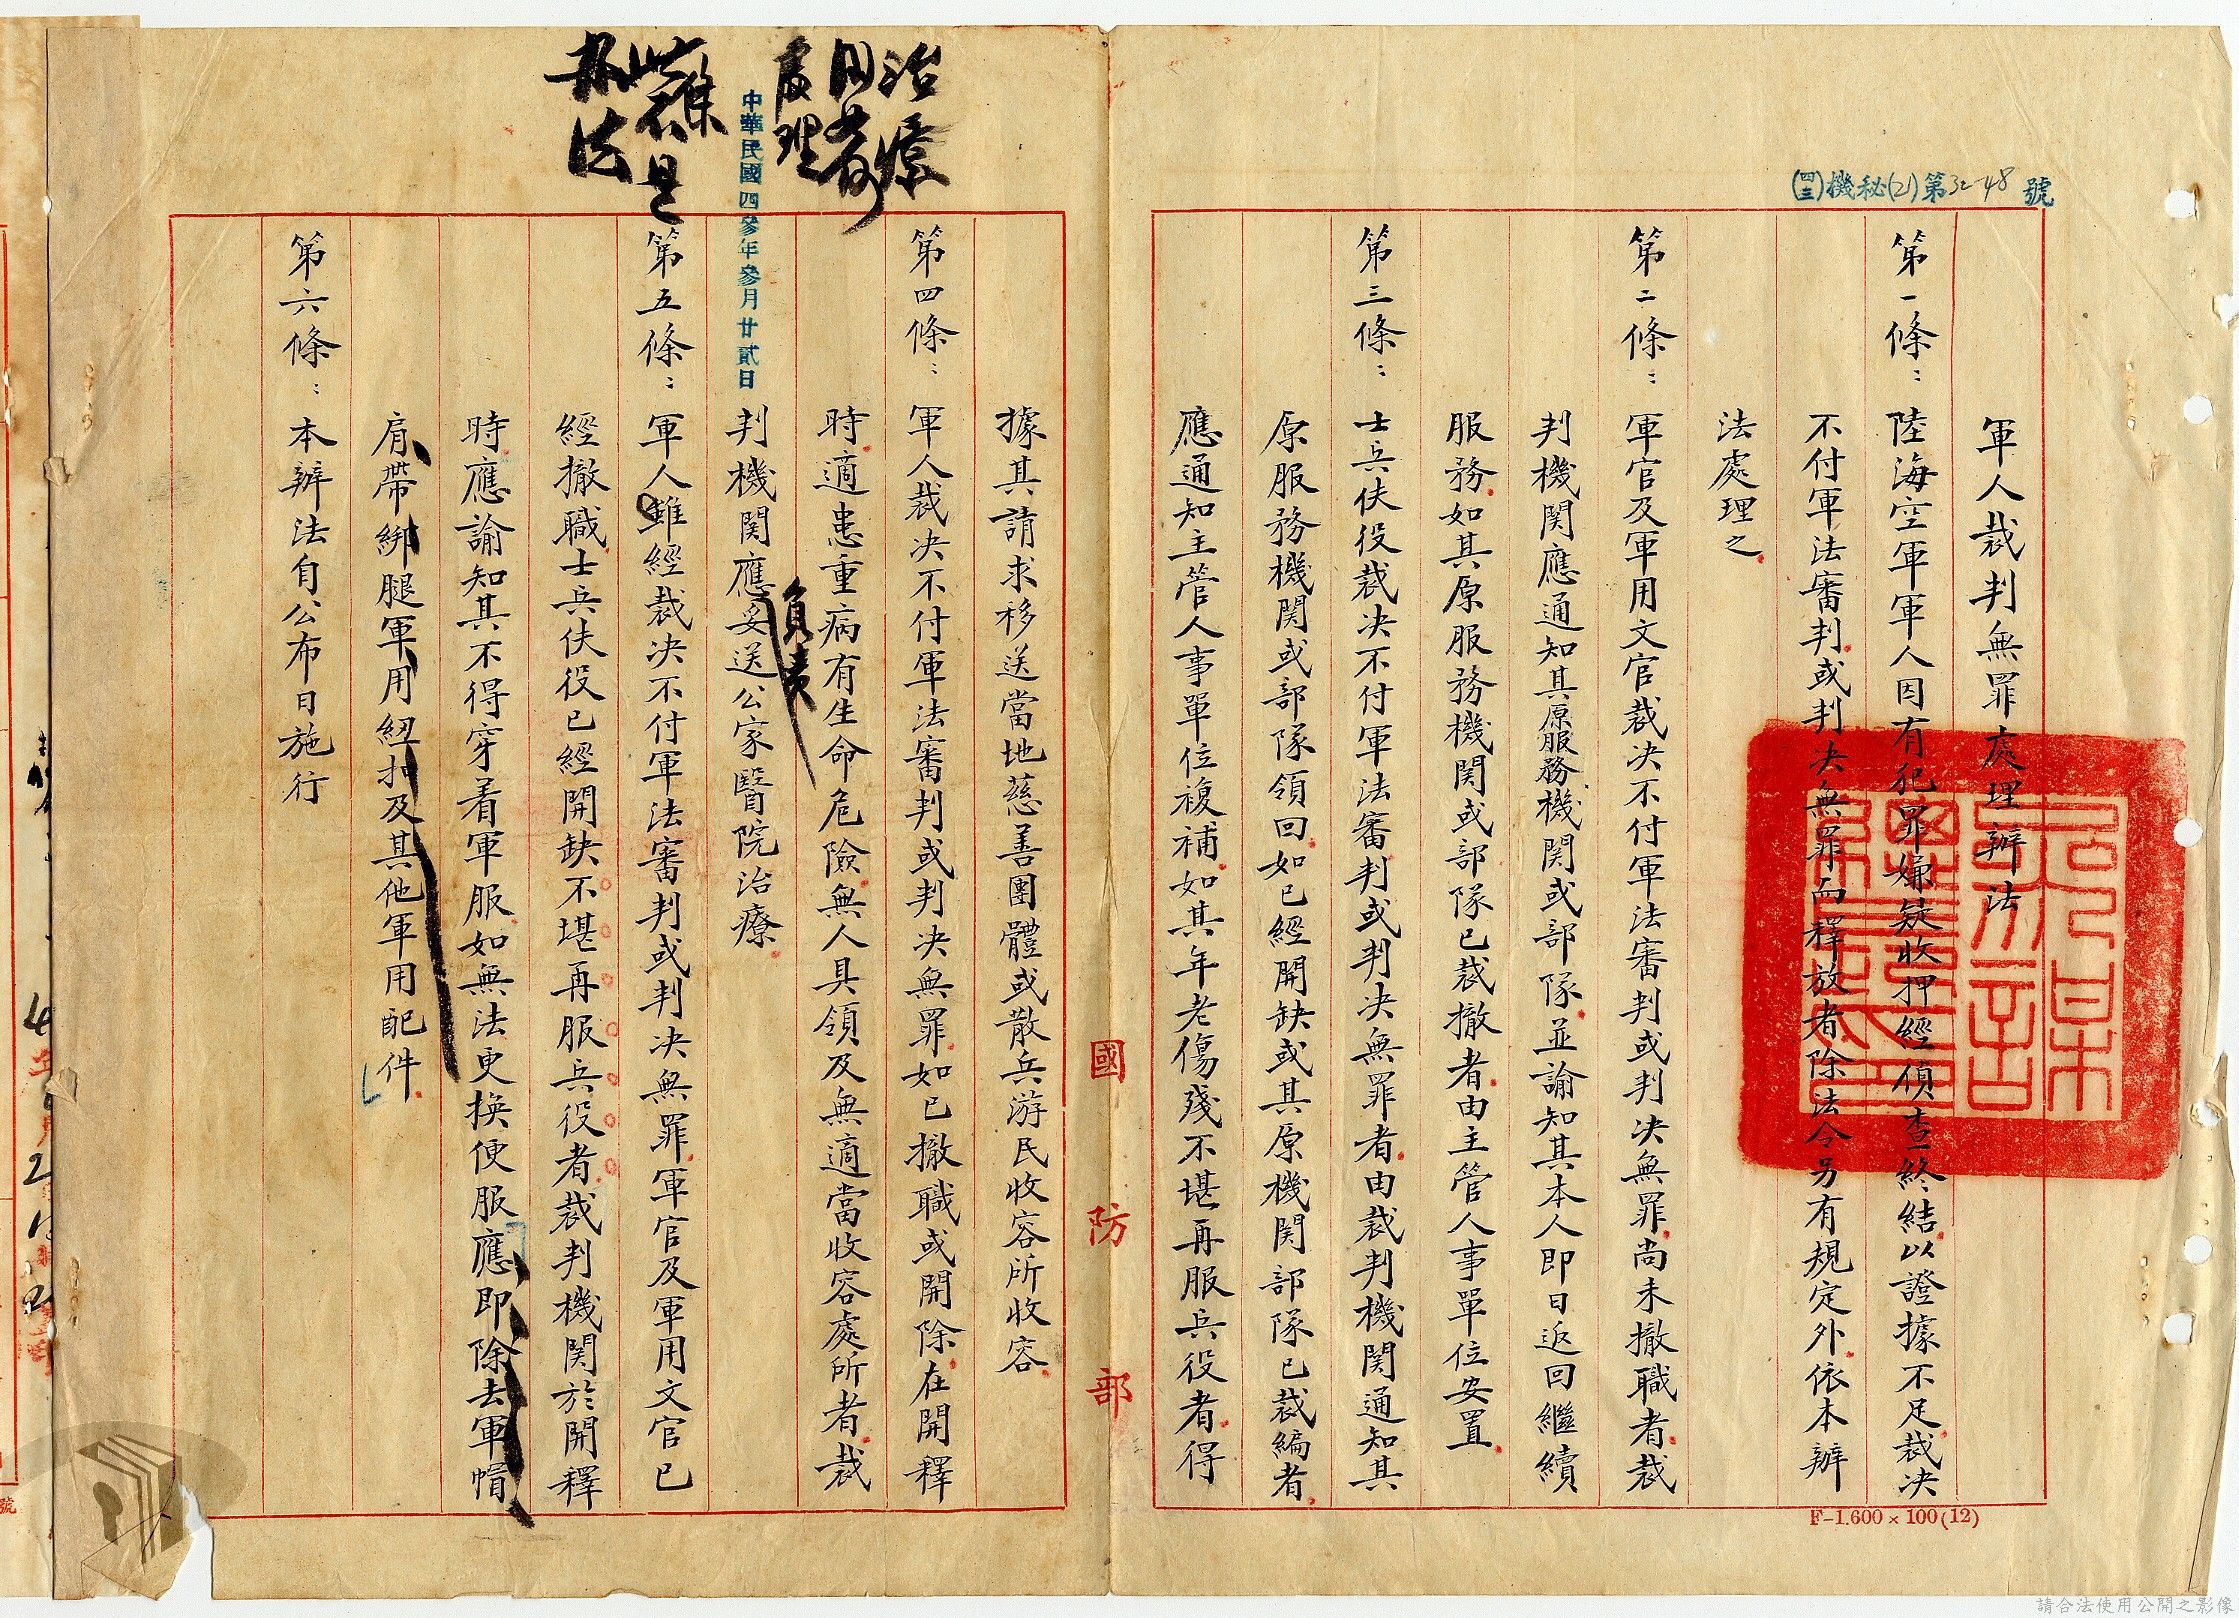 ㈣㈢機秘(21)第32-48號
軍人裁判無罪處理辦法
第一條：陸海空軍軍人因有犯罪嫌疑收押經偵查終結以證據不足裁決
不付軍法審判或判決無罪而釋放者除法令另有規定外依本辦
法處理之
第二條：軍官及軍用文官裁決不付軍法審判或判決無罪尚未撤職者裁
判機関應通知其原服務機関或部隊並諭知其本人即日返回繼續
服務如其原服務機関或部隊已裁撤者由主管人事單位安置
第三條：士兵伕役裁決不付軍法審判或判決無罪者由裁判機関通知其
原服務機関或部隊領回如已經開缺或其原機関部隊已裁編者
應通知主管人事單位複補如其年老傷殘不堪再服兵役者得
國防部
據其請求移送當地慈善團體或散兵游民收容所收容
第四條：軍人裁決不付軍法審判或判決無罪如已撤職或開除在開釋
時適患重病有生命危險無人具領及無適當收容處所者裁
判機関應妥送公家醫院治療
負責
治療
因者
處理
中華民國四參年參月廿貳日
第五條：軍人雖經裁決不付軍法審判或判決無罪軍官及軍用文官已
經撤職士兵伕役已經開缺不堪再服兵役者裁判機関於開釋
時應諭知其不得穿着軍服如無法更換便服應即除去軍帽
肩帶綁腿軍用紐扣及其他軍用配件
此條不是
辦法
第六條：本辦法自公布日施行
F-1.600×100(12)
請合法使用公開之影像